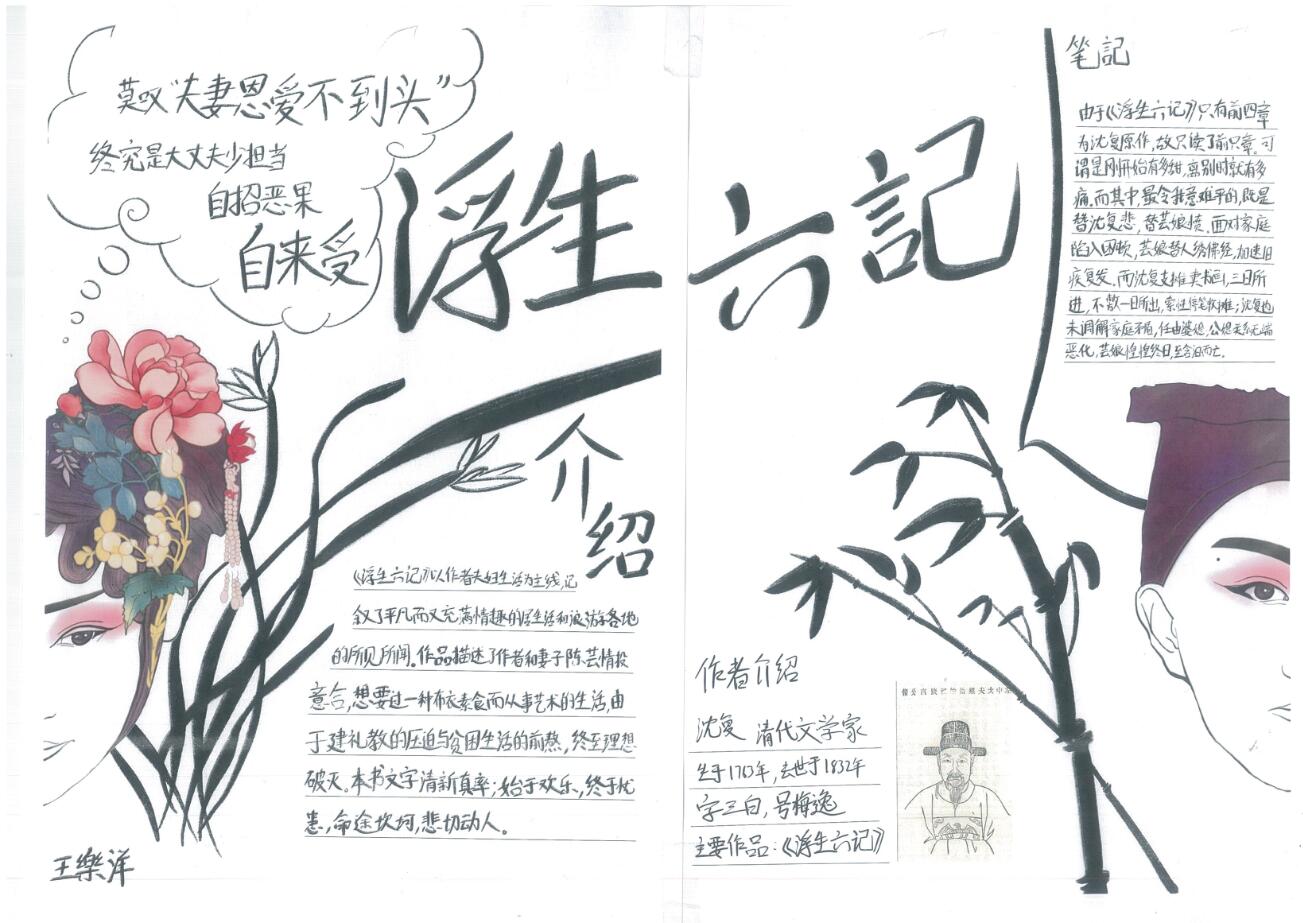 莫叹“夫妻恩爱不到头”
终究是大丈夫少担当
自招恶果
自来受
浮生六記
介绍
《浮生六记》以作者夫妇生活为主线,记
叙了平凡而又充满情趣的浮生活和浪游各地
的所见所闻。作品描述了作者和妻子陈芸情投
意合,想要过一种布衣素食而从事艺术的生活,由
于建礼教的压迫与贫困生活的煎熬,终至理想
破灭。本书文字清新真率;始于欢乐,终于忧
患,命途坎坷,悲切动人。
王樂洋
笔記
由于《浮生六记》只有前四章
为沈复原作,故只读了前四章。可
谓是刚开始有多甜,离别时就有多
痛。而其中,最令我意难平的,既是
替沈复悲,替芸娘愤。面对家庭
陷入困顿,芸娘替人绣佛经,加速旧
疾复发。而沈复支摊卖书画,三日所
进,不敷一日所出,索性停笔收摊;沈复也
未调解家庭矛盾,任由婆媳,公媳关系无端
恶化,芸娘惶惶终日,至含泪而亡。
作者介绍
沈复 清代文学家
生于1763年,去世于1832年
字三白,号梅逸
主要作品:《浮生六记》